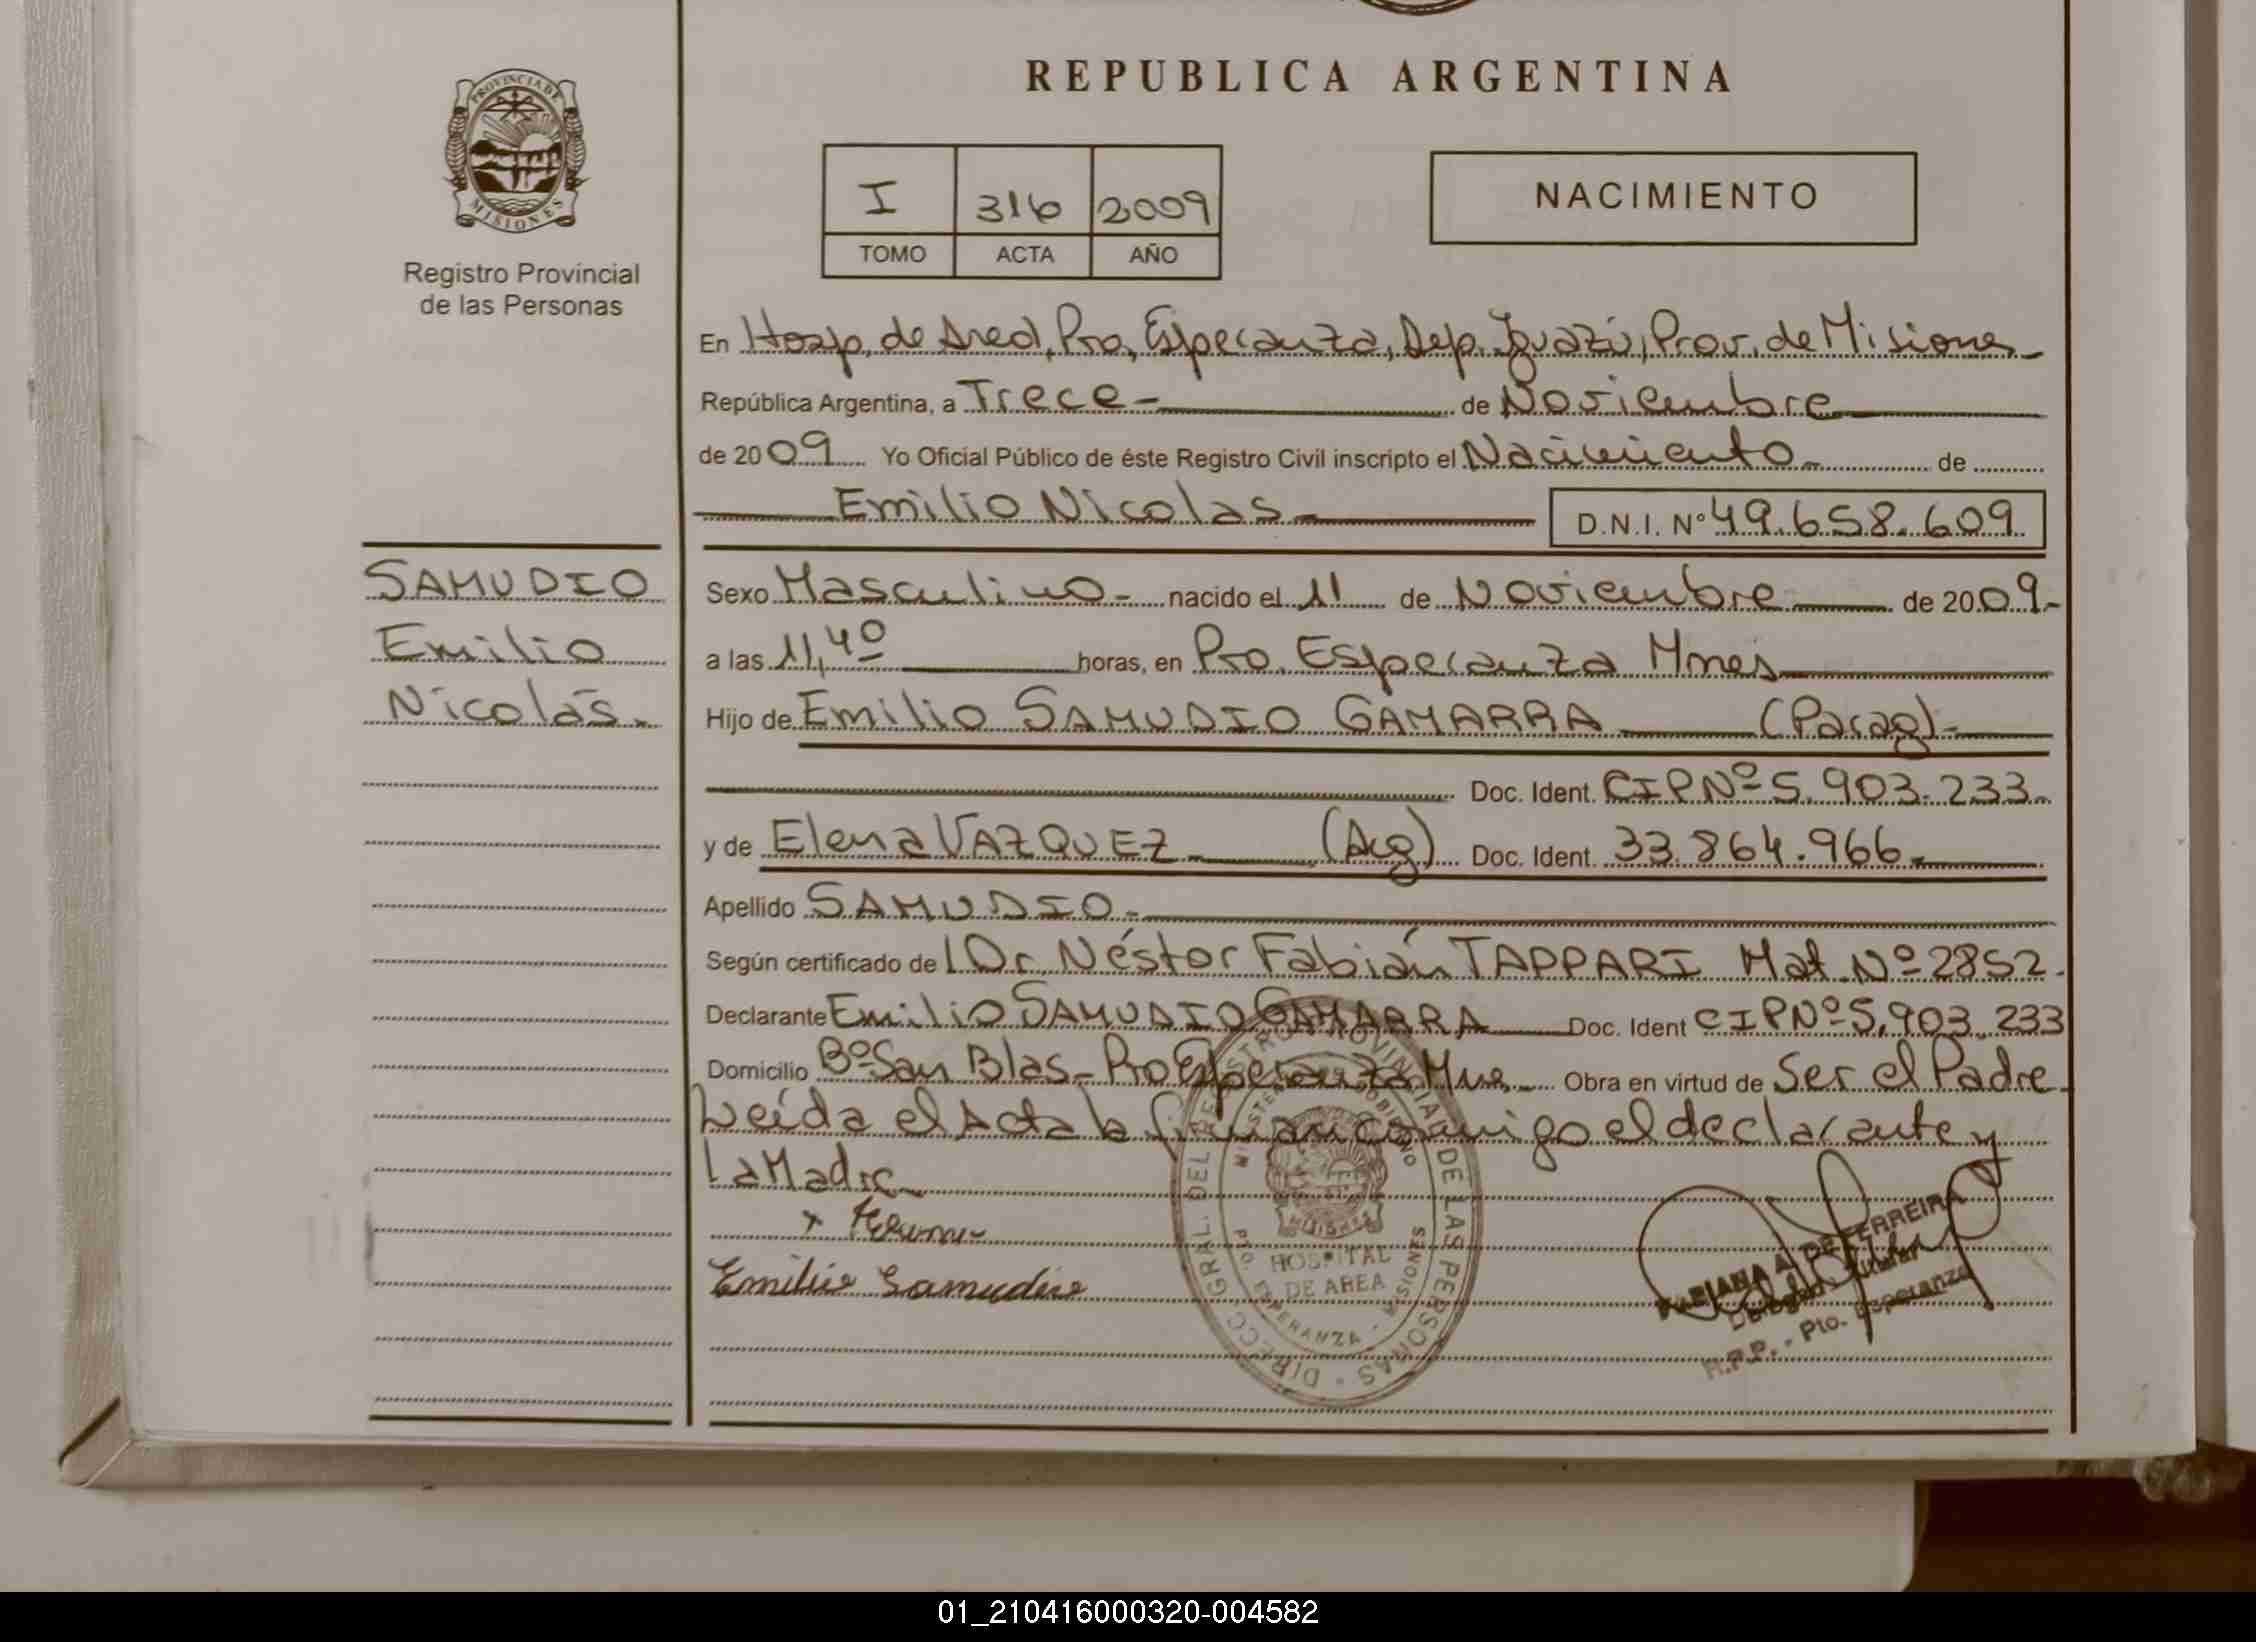 PROVINCIA DE
MISIONES
Registro Provincial
de las Personas
REPUBLICA ARGENTINA
I 316 2009
TOMO ACTA AÑO
NACIMIENTO
En Hosp. de Area, Pto, Esperanza, Dep. Iguazú, Prov. de Misiones
República Argentina, a Trece - de Noviembre
de 2009 Yo Oficial Público de éste Registro Civil inscripto el Nacimiento - de
Emilio Nicolas - D.N.I. Nº 49.658.609
SAMUDIO
Emilio
Nicolás.
Sexo Masculino - nacido el 11 de Noviembre de 2009.-
a las 11,40 horas, en Pto. Esperanza Mnes
Hijo de Emilio SAMUDIO GAMARRA (Parag) -
Doc. Ident. CIP Nº 5.903.233.
y de Elena VAZQUEZ - (Arg) Doc. Ident. 33.864.966.
Apellido SAMUDIO -
Según certificado de l Dr. Néstor Fabián TAPPARI Mat. Nº 2852.
Declarante Emilio SAMUDIO GAMARRA Doc. Ident CIP Nº 5.903.233
Domicilio Bº San Blas - Pto Esperanza Mnes - Obra en virtud de Ser el Padre
Leída el Acta la firman conmigo el declarante y
la Madre
Emilio Samudio
DIRECC. GRAL. DEL REGISTRO PROVINCIAL DE LAS PERSONAS
MINISTERIO GOBIERNO
MISIONES
HOSPITAL
DE AREA
PTO. ESPERANZA - MISIONES
FABIANA A. DE FERREIRA
Delegada Titular
R.P.P. - Pto. Esperanza
01_210416000320-004582